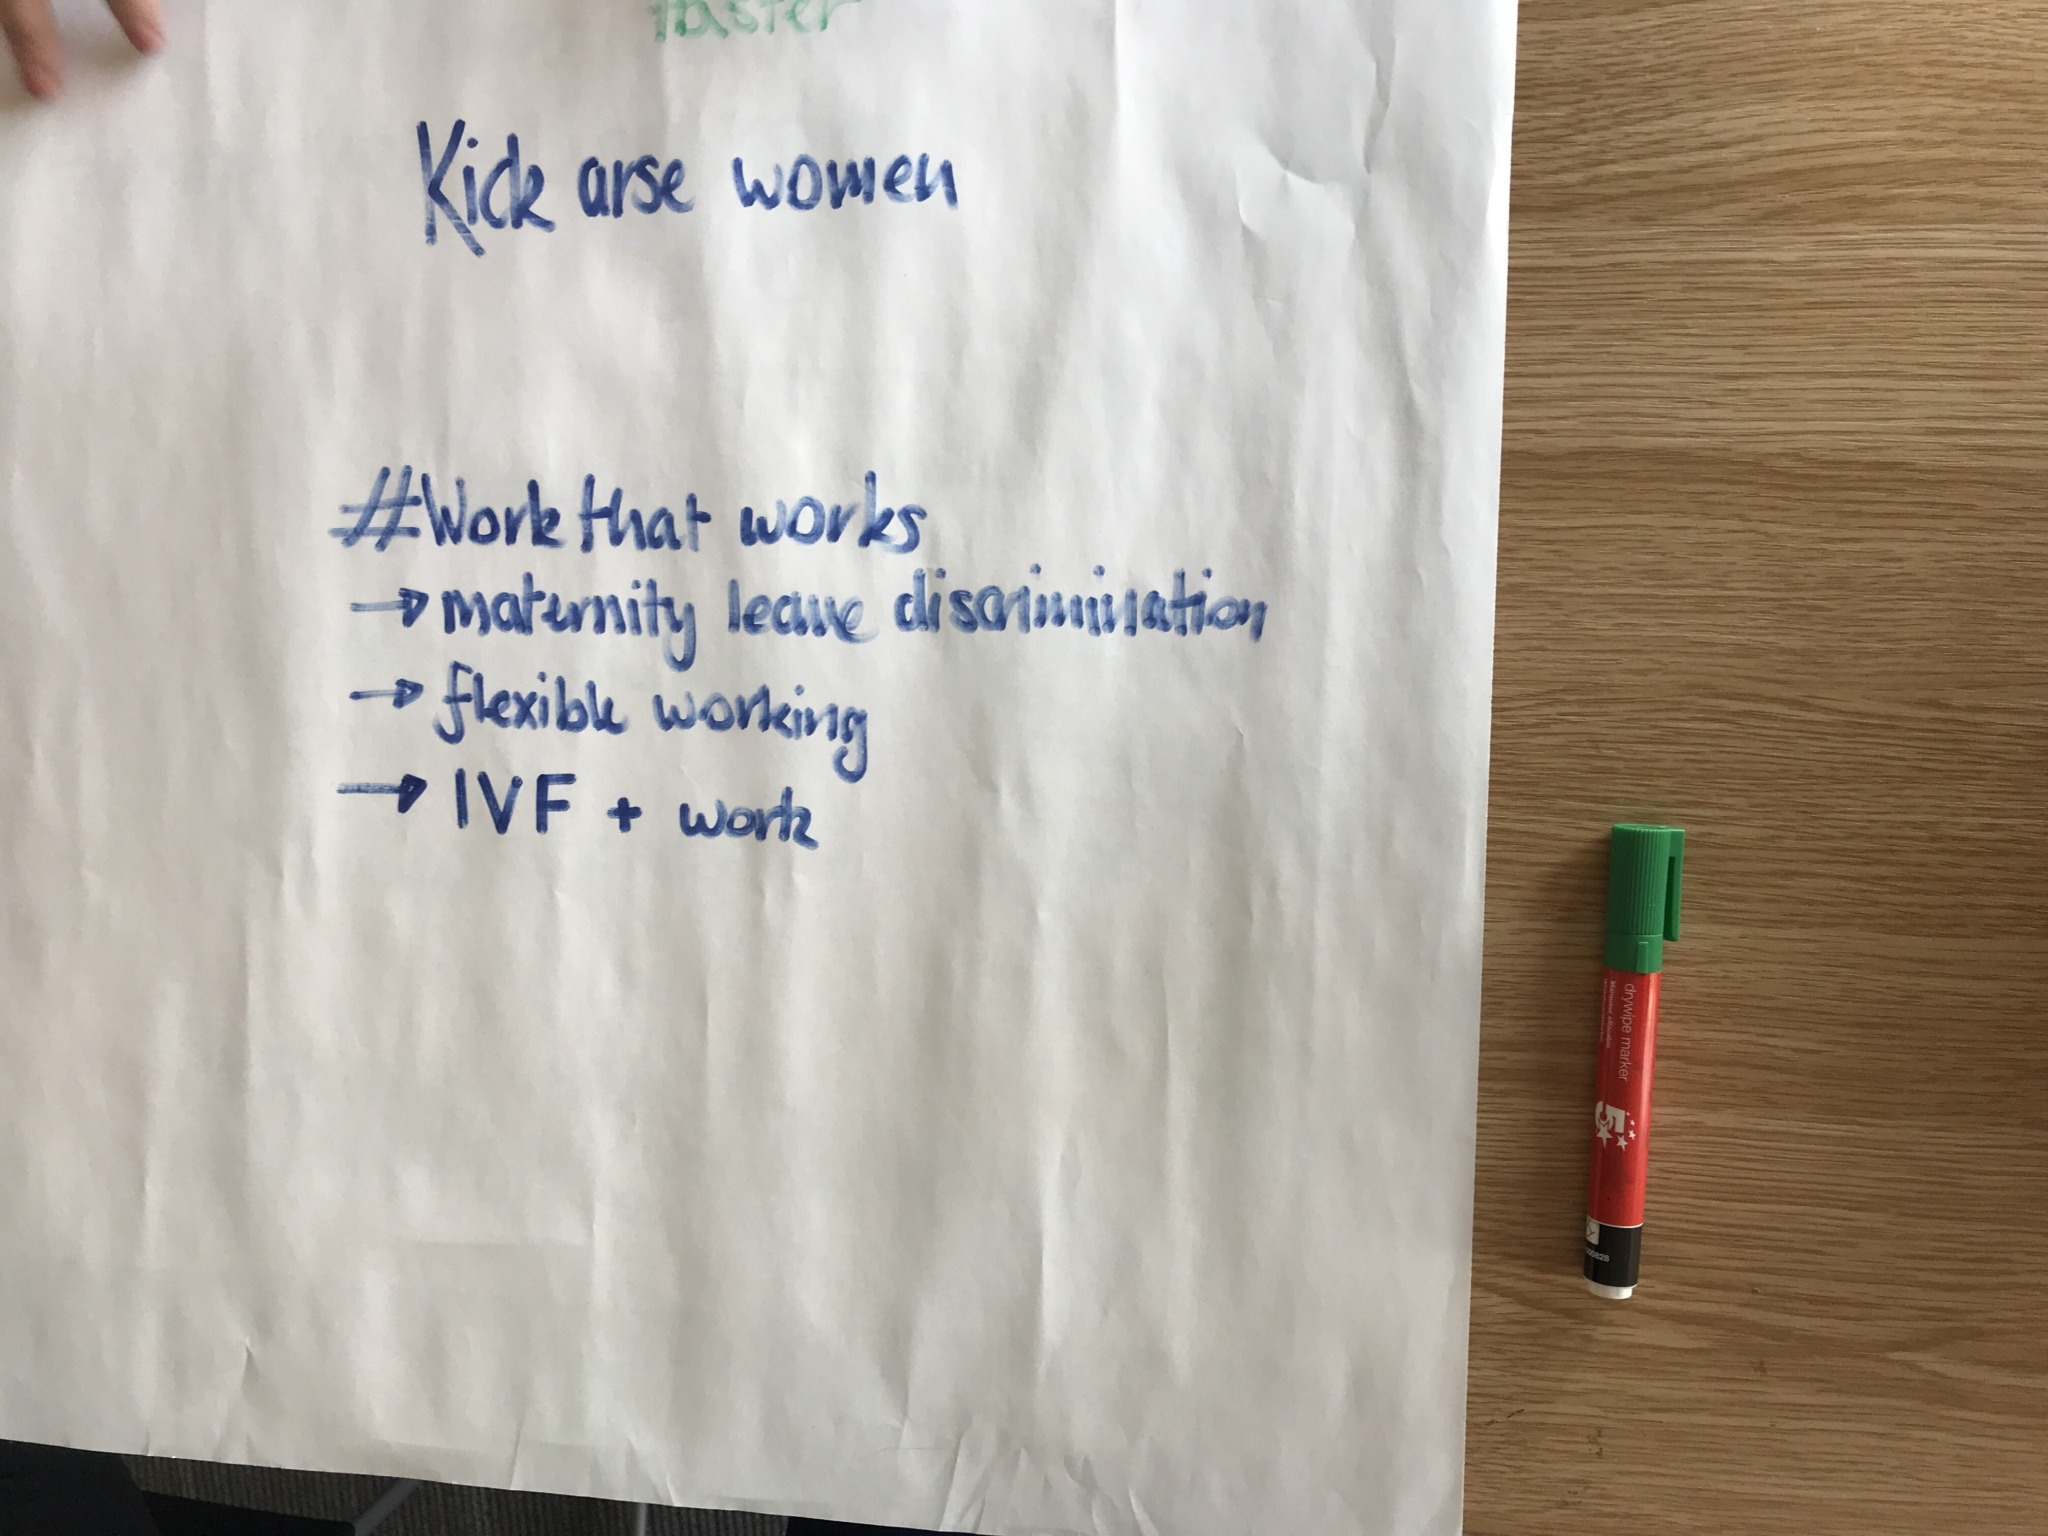 faster
Kick arse women
#Work that works
→ maternity leave discrimination
→ flexible working
→ IVF + work
drywipe marker
5